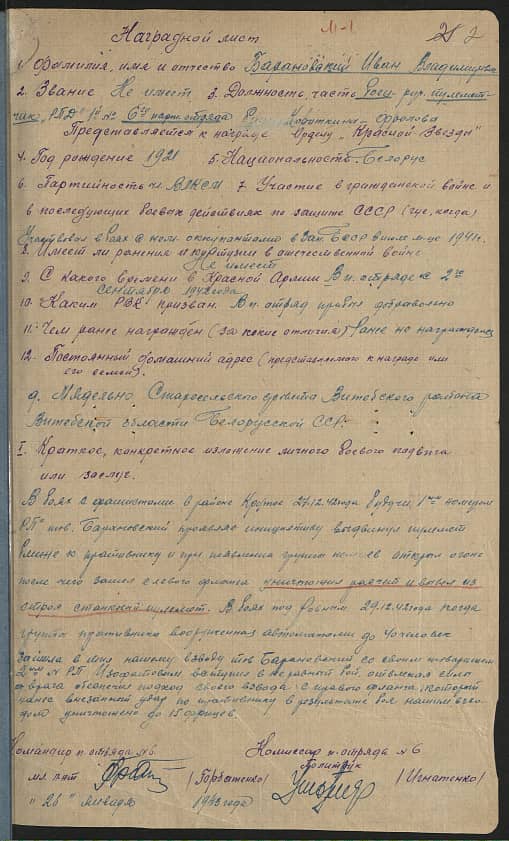 Наградной лист
1. Фамилия, имя и отчество Барановский Иван Владимирович
2. Звание Не имеет 3. Должность, часть
РПД 1й № 6го парт. отряда
Представляется к награде Ордену „Красной Звезды"
4. Год рождение 1921 5. Национальность Белорус
6. Партийность чл. ВЛКСМ 7. Участие в гражданской войне и
в последующих боевых действиях по защите СССР (где, когда)
Участвовал в боях с нем. оккупантами в Зап. БССР в июле м-це 1941г.
8. Имеет ли ранения и контузии в отечественной войне
Не имеет
9. С какого времени в Красной Армии В п. отряде с 2го
сентября 1942 года
10. Каким РВК призван. В п. отряд прибыл добровольно
11. Чем ранее награжден (за какие отличия) Ране не награждался
12. Постоянный домашний адрес (представляемого к награде или
его семьи).
д. Мядельно Старосельского с/совета Витебского района
Витебской области Белорусской ССР.
I. Краткое, конкретное изложение личного боевого подвига
или заслуг.
В боях с фашистами в районе Крутое 27.12.42 года будучи, 1ым номером
РП тов. Барановский проявляя инициативу выдвинул пулемет
ближе к противнику и при появлении группы немцев открыл огонь
после чего зашел с левого фланга уничтожил расчет и вывел из
строя станковый пулемет. В боях под Ровным 29.12.42 года когда
группа противника вооруженная автоматами до 40 человек
зашла в тыл нашему взводу тов Барановский со своим товарищем
2ым № РП вступил в неравный бой, отвлекая силы
врага обеспечил подход своего взвода с правого фланга, который
нанес внезапный удар по противнику в результате боя нашим взво-
дом уничтожено до 15 фрицев.
Командир п. отряда №6 Комиссар п. отряда №6
мл. лейт. политрук
/Горбатенко/ /Игнатенко/
„26" января 1943 года